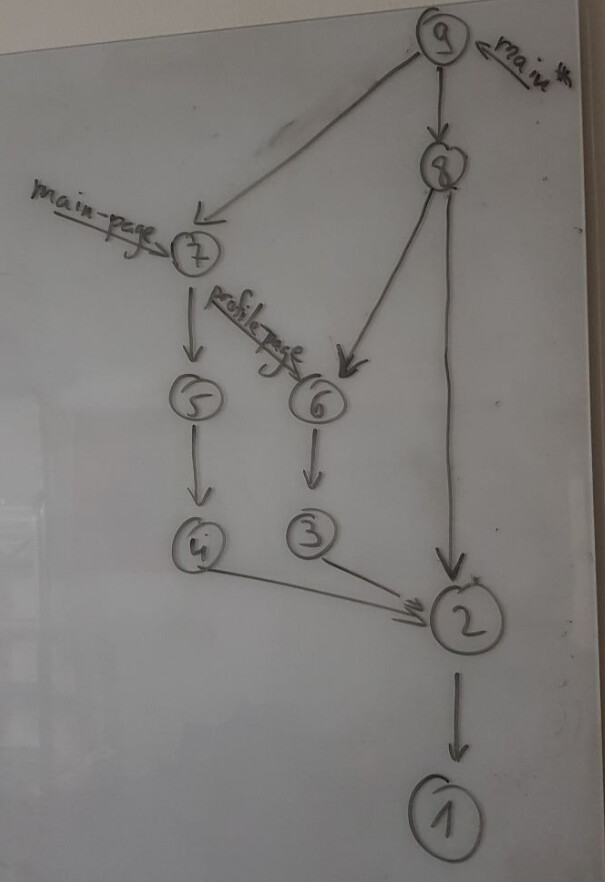 9
main*
8
main-page
7
profile-page
5
6
4
3
2
1